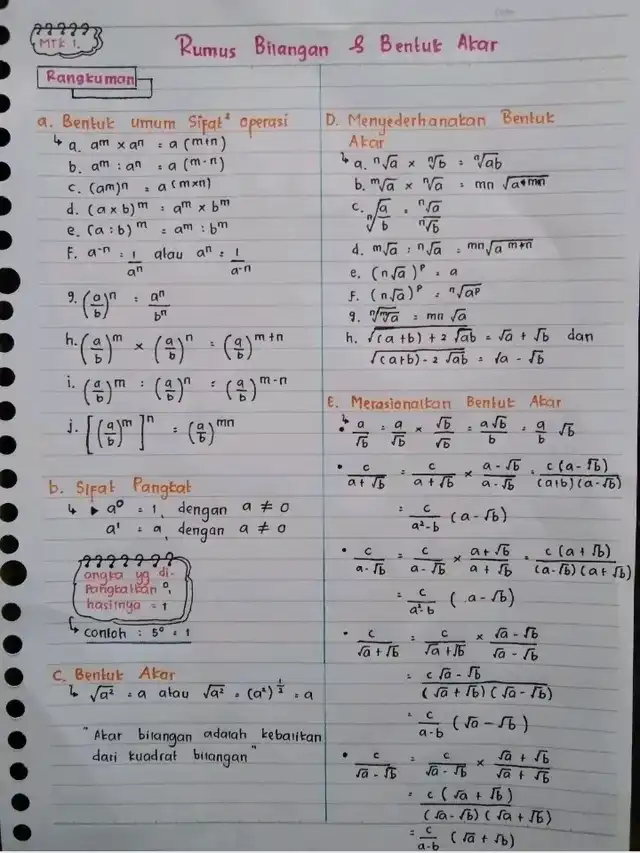 MTK 1.
Rumus Bilangan & Bentuk Akar
Rangkuman
a. Bentuk umum Sifat² operasi
↳ a. aᵐ × aⁿ = a (m+n)
b. aᵐ : aⁿ = a (m-n)
c. (am)n = a (m×n)
d. (a × b)ᵐ = aᵐ × bᵐ
e. (a : b)ᵐ = aᵐ : bᵐ
F. a⁻ⁿ = 1/aⁿ atau aⁿ = 1/a⁻ⁿ
g. (a/b)ⁿ = aⁿ/bⁿ
h. (a/b)ᵐ × (a/b)ⁿ = (a/b)ᵐ⁺ⁿ
i. (a/b)ᵐ : (a/b)ⁿ = (a/b)ᵐ⁻ⁿ
j. [(a/b)ᵐ]ⁿ = (a/b)ᵐⁿ
b. Sifat Pangkat
↳ ▸ a⁰ = 1, dengan a ≠ 0
a¹ = a, dengan a ≠ 0
angka yg di-
Pangkatkan 0,
hasilnya = 1
↳ contoh : 5⁰ = 1
C. Bentuk Akar
↳ √a² = a atau √a² = (a²)^1/2 = a
"Akar bilangan adalah kebalikan
dari kuadrat bilangan"
D. Menyederhanakan Bentuk
Akar
↳ a. ⁿ√a × ⁿ√b = ⁿ√ab
b. ᵐ√a × ⁿ√a = mn √a+mn
c. ⁿ√a/b = ⁿ√a/ⁿ√b
d. m√a : ⁿ√a = mn√a m+n
e. (n√a)ᵖ = a
F. (n√a)ᵖ = ⁿ√aᵖ
g. ⁿ√ᵐ√a = mn √a
h. √(a+b) + 2√ab = √a + √b dan
√(a+b) - 2√ab = √a - √b
E. Merasionalkan Bentuk Akar
↳ • a/√b = a/√b × √b/√b = a√b/b = a/b √b
• c/a+√b = c/a+√b × a-√b/a-√b = c(a-√b)/(a+b)(a-√b)
= c/a²-b (a-√b)
• c/a-√b = c/a-√b × a+√b/a+√b = c(a+√b)/(a-√b)(a+√b)
= c/a²-b (a-√b)
• c/√a+√b = c/√a+√b × √a-√b/√a-√b
= c√a-√b/(√a+√b)(√a-√b)
= c/a-b (√a-√b)
• c/√a-√b = c/√a-√b × √a+√b/√a+√b
= c(√a+√b)/(√a-√b)(√a+√b)
= c/a-b (√a+√b)